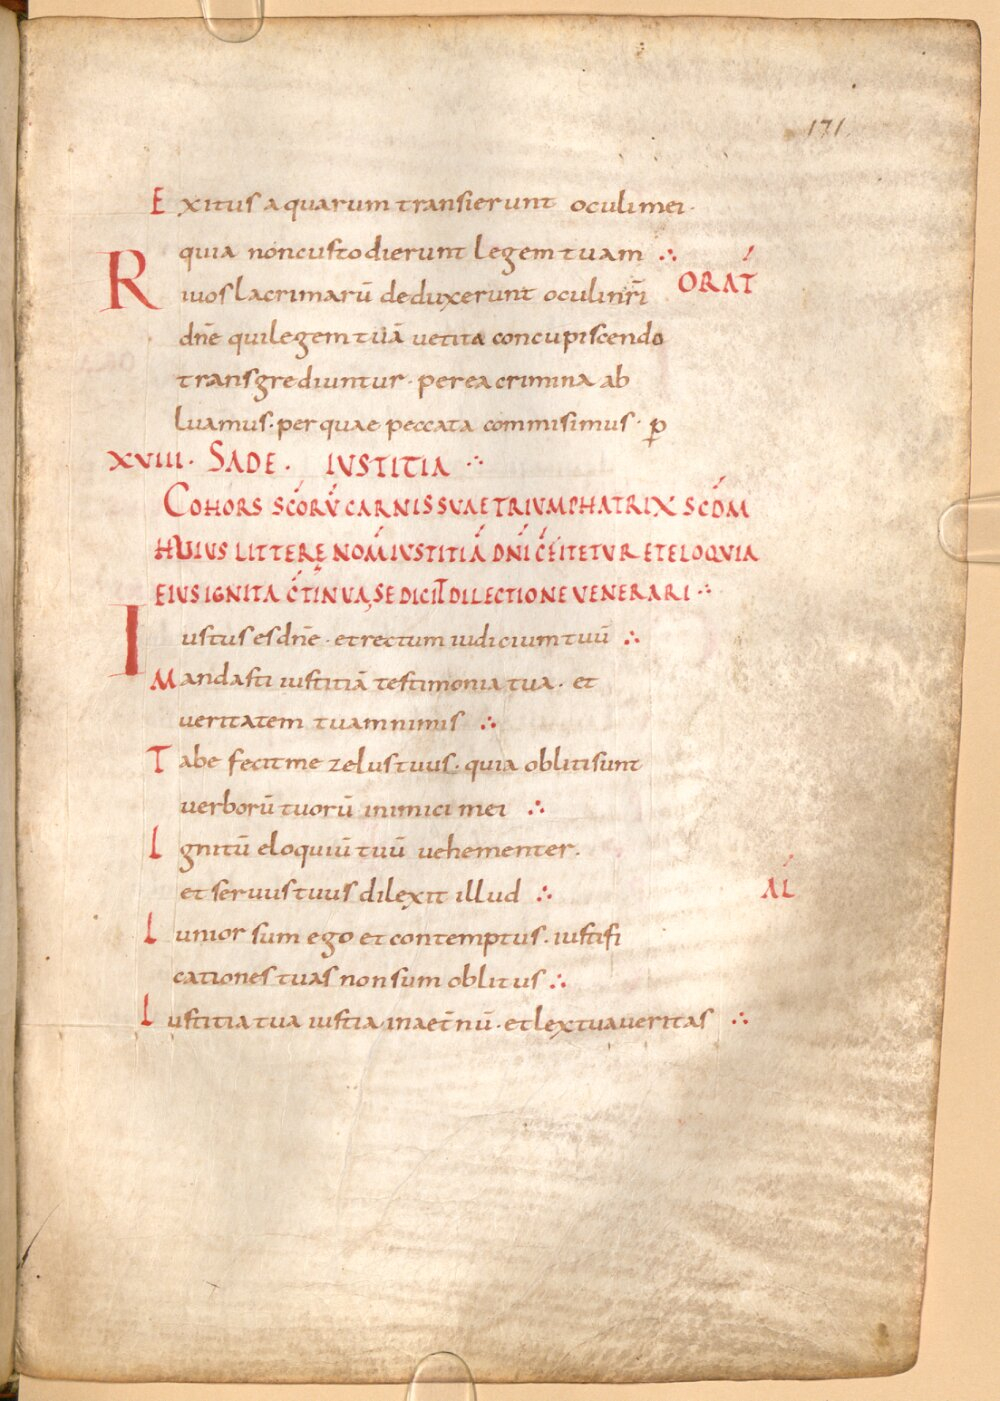 171
Exitus aquarum transierunt oculi mei·
quia non custodierunt legem tuam ∴
ORAT̄
Riuos lacrimarū deduxerunt oculi nr̄i
dn̄e qui legem tuā uetita concupiscendo
transgrediuntur· per ea crimina ab
luamus· per quae peccata commisimus· ꝑ
XVIII· SADE· IVSTITIA ∴
COHORS SC̄ORV̄ CARNIS SVAE TRIVMPHATRIX SCD̄M
HUIUS LITTERĘ NOM̄ IVSTITIĀ DN̄I C̄FITETVR ET ELOQVIA
EIVS IGNITA C̄TINVA SE DICIT DILECTIONE VENERARI ∴
Iustus es dn̄e· et rectum iudicium tuū ∴
Mandasti iustitiā testimonia tua· et
ueritatem tuam nimis ∴
Tabefecit me zelus tuus· quia obliti sunt
uerborū tuorū inimici mei ∴
Ignitū eloquiū tuū uehementer·
et seruus tuus dilexit illud ∴
AL̄
Iunior sum ego et contemptus· iustifi
cationes tuas non sum oblitus ∴
Iustitia tua iustia in aet̄nū· et lex tua ueritas ∴